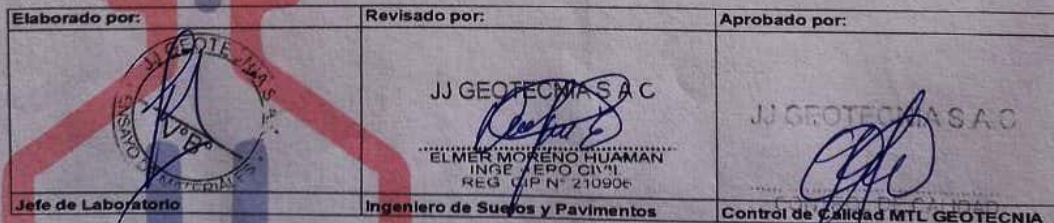 Elaborado por:
Revisado por:
Aprobado por:
JJ GEOTECNIA S.A.C.
ENSAYO DE MATERIALES
VºBº
JJ GEOTECNIA S A C
ELMER MORENO HUAMAN
INGENIERO CIVIL
REG CIP Nº 210906
JJ GEOTECNIA S.A.C
CONTROL DE CALIDAD
Jefe de Laboratorio
Ingeniero de Suelos y Pavimentos
Control de Calidad MTL GEOTECNIA